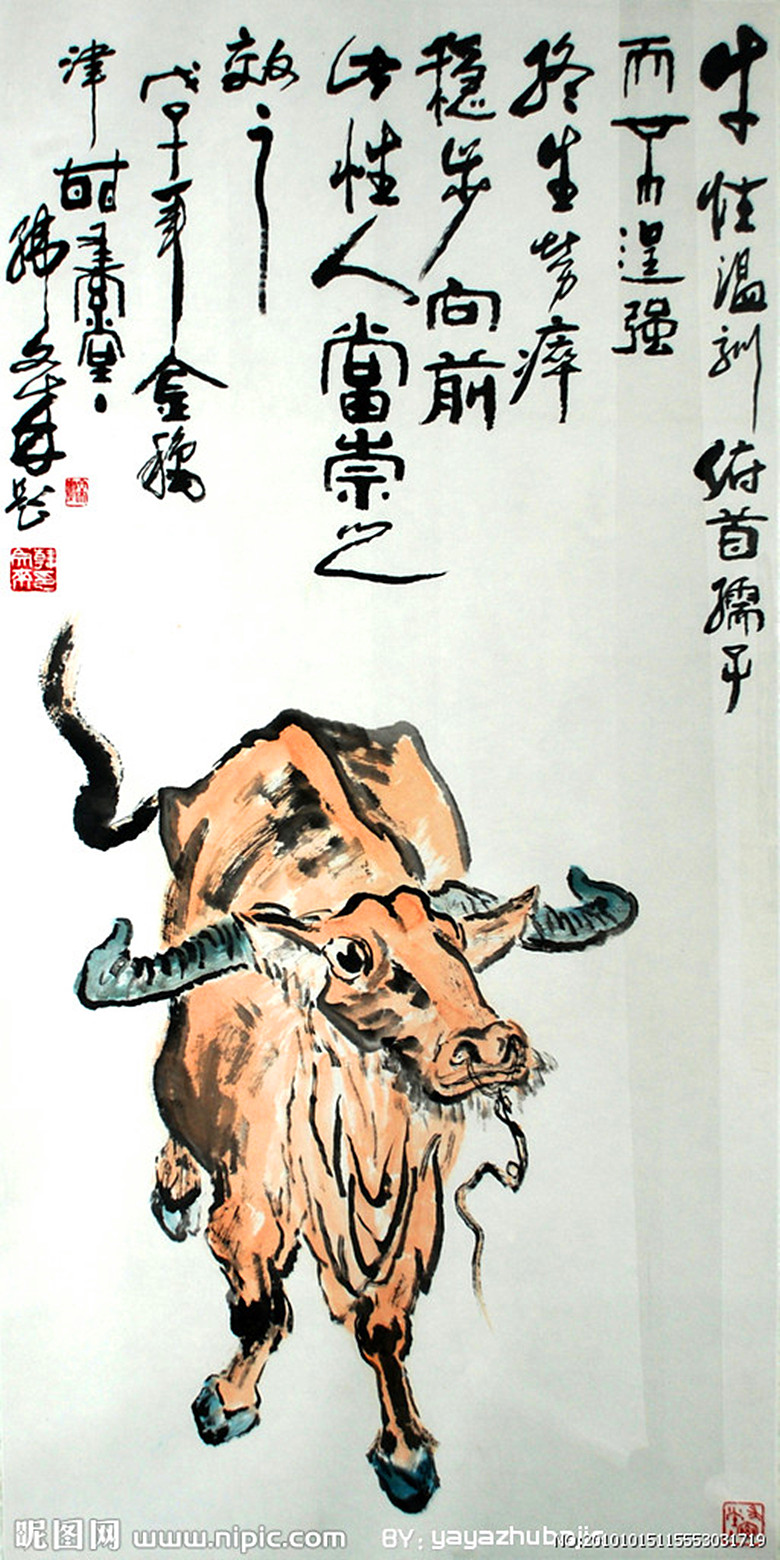 牛性温驯 俯首孺子
而不逞强
终生劳瘁
稳步向前
此性人當崇之
效之
戊子年金秋
津
韩文来题
昵图网 www.nipic.com
BY: yayazhubajie
NO:20101015115553031719